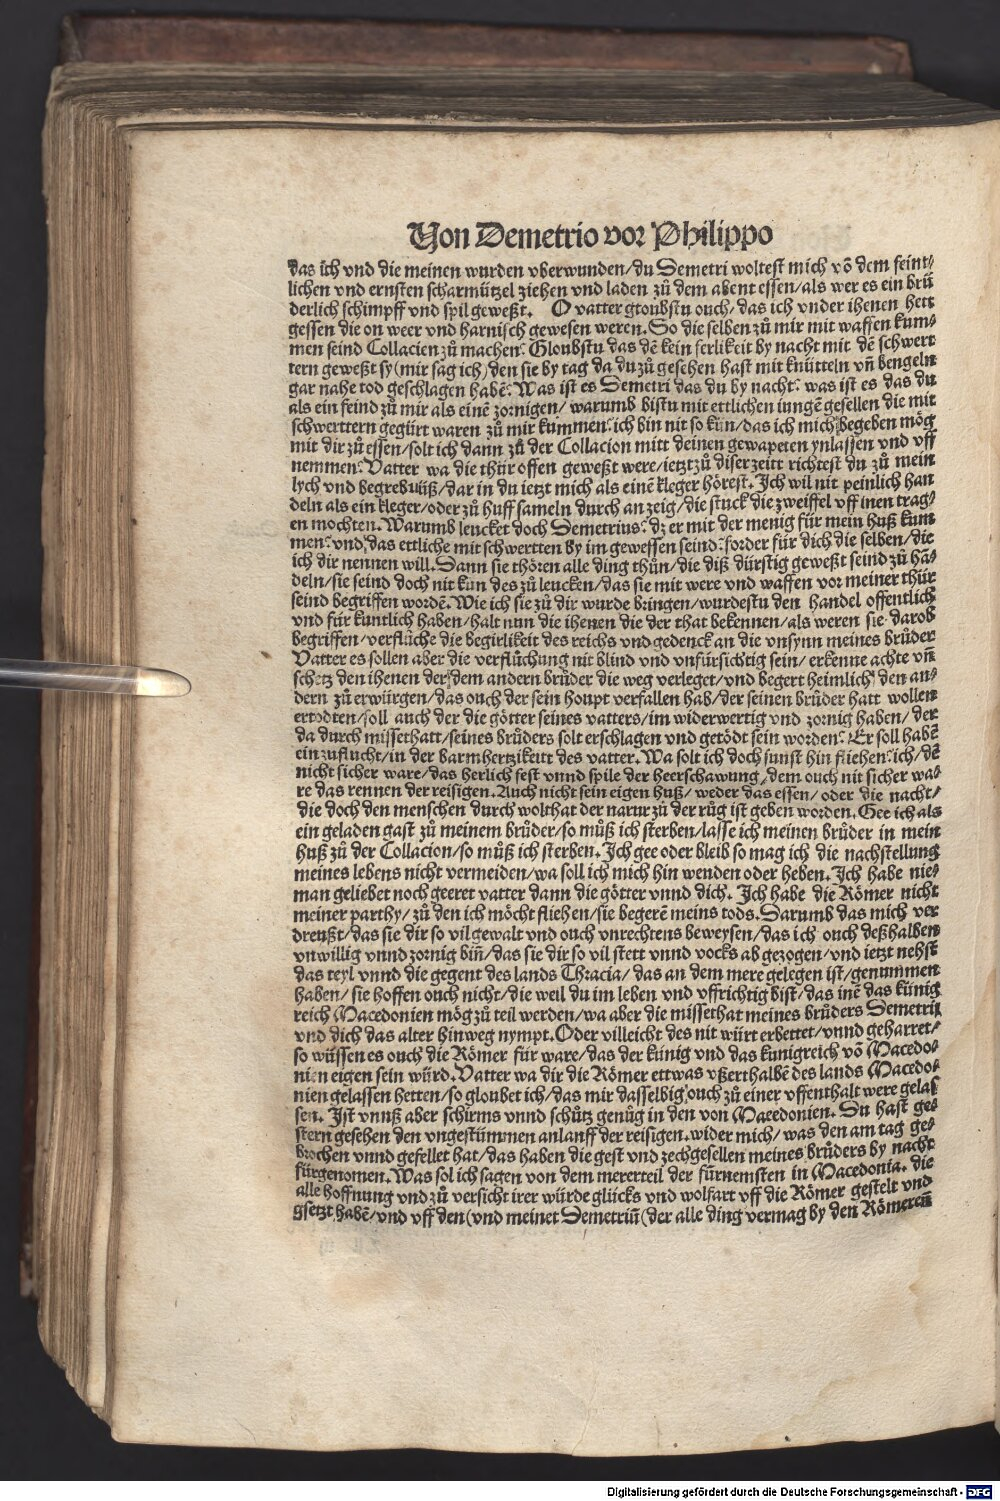 Von Demetrio vor Philippo
das ich vnd die meinen wurden vberwunden/du Demetri woltest mich võ dem feint⸗
lichen vnd ernsten scharmützel ziehen vnd laden zů dem abent essen/als wer es ein brů
derlich schimpff vnd spil geweßt. O vatter gloubstu ouch/das ich vnder ihenen hett
gessen die on weer vnd harnisch gewesen weren. So die selben zů mir mit waffen kum⸗
men seind Collacien zů machen? Gloubstu das dẽ kein ferlikeit by nacht mit dẽ schwert
tern geweßt sy(mir sag ich)den sie by tag da du zů gesehen hast mit knütteln vñ bengeln
gar nahe tod geschlagen habẽ? Was ist es Demetri das du by nacht? was ist es das du
als ein feind zů mir als einẽ zornigen/warumb bistu mit ettlichen iungẽ gesellen die mit
schwerttern gegürt waren zů mir kummen? ich bin nit so kün/das ich mich begeben mög
mit dir zů essen/solt ich dann zů der Collacion mitt deinen gewapeten ynlassen vnd vff
nemmen? Vatter wa die thür offen geweßt were/ietzt zů diser zeitt richtest du zů mein
lych vnd begrebnüß/dar in du ietzt mich als einẽ kleger hörest. Ich wil nit peinlich han
deln als ein kleger/oder zů huff sameln durch anzeig/die stuck die zweiffel vff inen trag⸗
en mochten. Warumb leucket doch Demetrius? dz er mit der menig für mein huß kum
men? vnd das ettliche mit schwertten by im gewessen seind? forder für dich die selben/die
ich dir nennen will. Dann sie thören alle ding thůn/die diß dürstig geweßt seind zů hã⸗
deln/sie seind doch nit kün des zů leucken/das sie mit were vnd waffen vor meiner thür
seind begriffen wordẽ. Wie ich sie zů dir wurde bringen/wurdestu den handel offentlich
vnd für kuntlich haben/halt nun die ihenen die der that bekennen/als weren sie darob
begriffen/verflůche die begirlikeit des reichs vnd gedenck an die vnsynn meines brůder
Vatter es sollen aber die verflůchung nit blind vnd vnfürsichtig sein/erkenne achte vñ
schetz den ihenen der dem andern brůder die weg verleget/vnd begert heimlich den an⸗
dern zů erwürgen/das ouch der sein houpt verfallen hab/der seinen brůder hatt wollen
ertodten/soll auch der die götter seines vatters/im widerwertig vnd zornig haben/der
da durch missethatt/seines brůders solt erschlagen vnd getödt sein worden? Er soll habẽ
ein zuflucht/in der barmhertzikeitt des vatter. Wa solt ich doch sunst hin fliehen? ich/dẽ
nicht sicher ware/das herlich fest vnnd spile der heerschawung/dem ouch nit sicher wa⸗
re das rennen der reisigen. Auch nicht sein eigen huß/weder das essen/oder die nacht/
die doch den menschen durch wolthat der natur zů der růg ist geben worden. Gee ich als
ein geladen gast zů meinem brůder/so můß ich sterben/lasse ich meinen brůder in mein
huß zů der Collacion/so můß ich sterben. Ich gee oder bleib so mag ich die nachstellung
meines lebens nicht vermeiden/wa soll ich mich hin wenden oder heben. Ich habe nie⸗
man geliebet noch geeret vatter dann die götter vnnd dich. Ich habe die Römer nicht
meiner parthy/zů den ich möcht fliehen/sie begerẽ meins tods. Darumb das mich ver
dreußt/das sie dir so vil gewalt vnd ouch vnrechtens beweysen/das ich ouch deßhalben
vnwillig vnnd zornig biñ/das sie dir so vil stett vnnd vocks ab gezogen/vnd ietzt nehst
das teyl vnnd die gegent des lands Thracia/das an dem mere gelegen ist/genummen
haben/sie hoffen ouch nicht/die weil du im leben vnd vffrichtig bist/das inẽ das künig
reich Macedonien mög zů teil werden/wa aber die missethat meines brůders Demetrij
vnd dich das alter hinweg nympt. Oder villeicht des nit würt erbettet/vnnd geharret/
so wüssen es ouch die Römer für ware/das der künig vnd das kunigreich võ Macedo⸗
nien eigen sein würd. Vatter wa dir die Römer ettwas vßerthalbẽ des lands Macedo⸗
nien gelassen hetten/so gloubet ich/das mir dasselbig ouch zů einer vffenthalt were gelas
sen. Ist vnnß aber schirms vnnd schütz genůg in den von Macedonien. Du hast ges⸗
stern gesehen den vngestümmen anlanff der reisigen wider mich/was den am tag ge⸗
brochen vnnd gefellet hat/das haben die gest vnd zechgesellen meines brůders by nacht
fürgenomen. Was sol ich sagen von dem mererteil der fürnemsten in Macedonia. die
alle hoffnung vnd zů versicht irer würde glücks vnd wolfart vff die Römer gestelt vnd
gsetzt habẽ/vnd vff den(vnd meinet Demetriũ(der alle ding vermag by den Römereñ
Digitalisierung gefördert durch die Deutsche Forschungsgemeinschaft - DFG